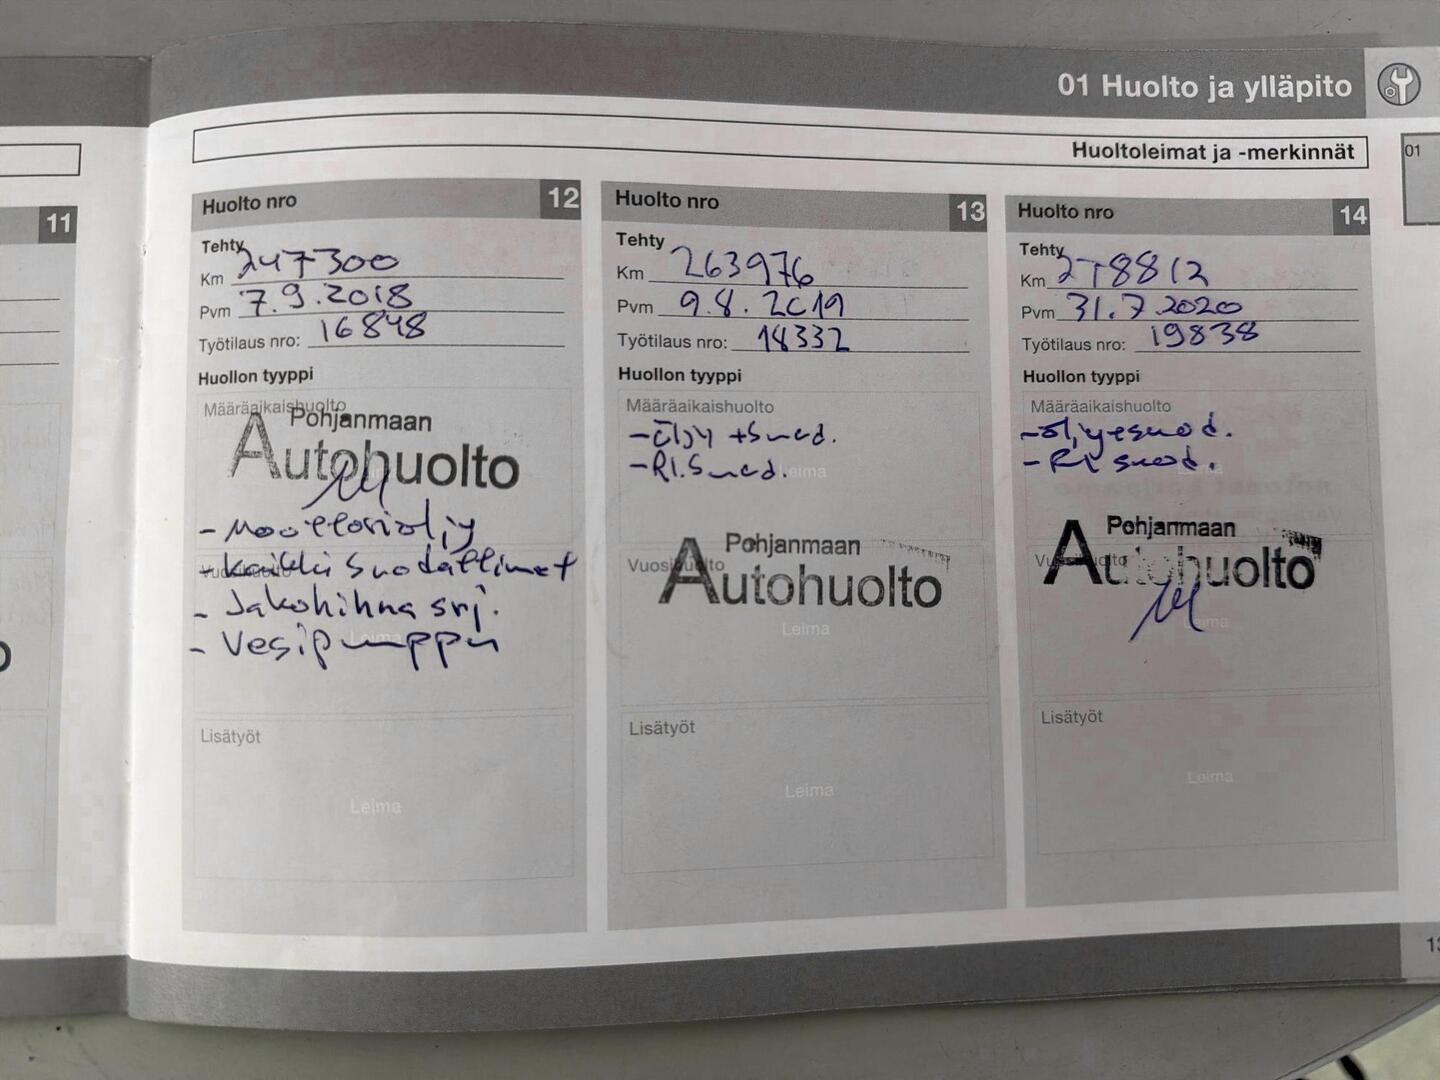 01 Huolto ja ylläpito
Huoltoleimat ja -merkinnät
01
11
Huolto nro 12
Tehty
Km 247300
Pvm 7.9.2018
Työtilaus nro: 16848
Huollon tyyppi
Määräaikaishuolto
Pohjanmaan
Autohuolto
- Moottoriöljy
Vuosihuolto
- Kaikki suodattimet
- Jakohihna srj.
- Vesipumppu
Leima
Lisätyöt
Leima
Huolto nro 13
Tehty
Km 263976
Pvm 9.8.2019
Työtilaus nro: 18332
Huollon tyyppi
Määräaikaishuolto
- Öljy + Suod.
- Rt. Suod.
Leima
Pohjanmaan
Vuosihuolto
Autohuolto
Leima
Lisätyöt
Leima
Huolto nro 14
Tehty
Km 278812
Pvm 31.7.2020
Työtilaus nro: 19838
Huollon tyyppi
Määräaikaishuolto
- öljyesuod.
- Rt suod.
Leima
Pohjanmaan
Vuosihuolto
Autohuolto
Leima
Lisätyöt
Leima